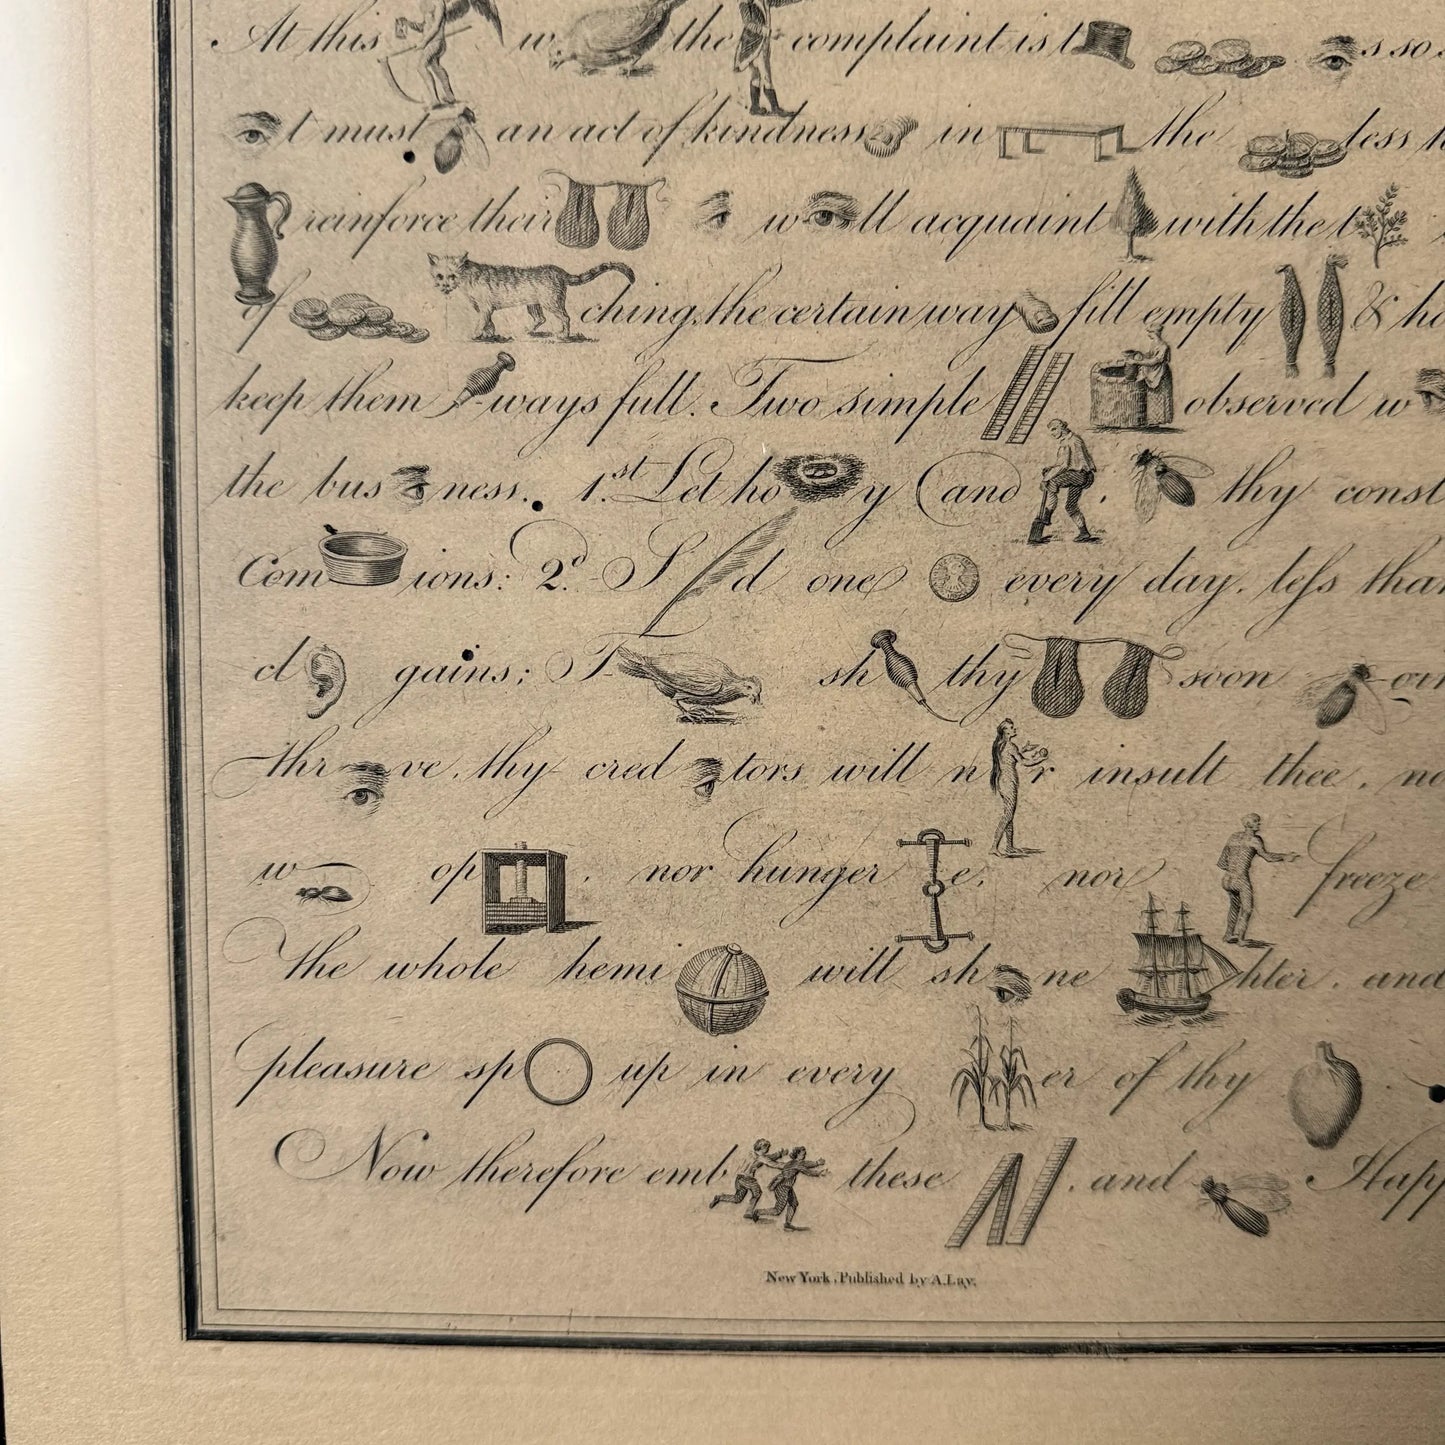 At this w the complaint is t s so
t must an act of kindness in the less
reinforce their w ll acquaint with the t
of ching, the certain way fill empty & ho
keep them ways full. Two simple observed w
the bus ness. 1.st Let ho y (and . thy const
Com ions: 2.d S d one every day, less than
cl gains; T sh thy soon
thr ve, thy cred tors will n r insult thee, no
w op . nor hunger e, nor freeze
The whole hemi will sh ne hter, and
pleasure sp up in every er of thy .
Now therefore emb these , and Happ
New York, Published by A. Lay.